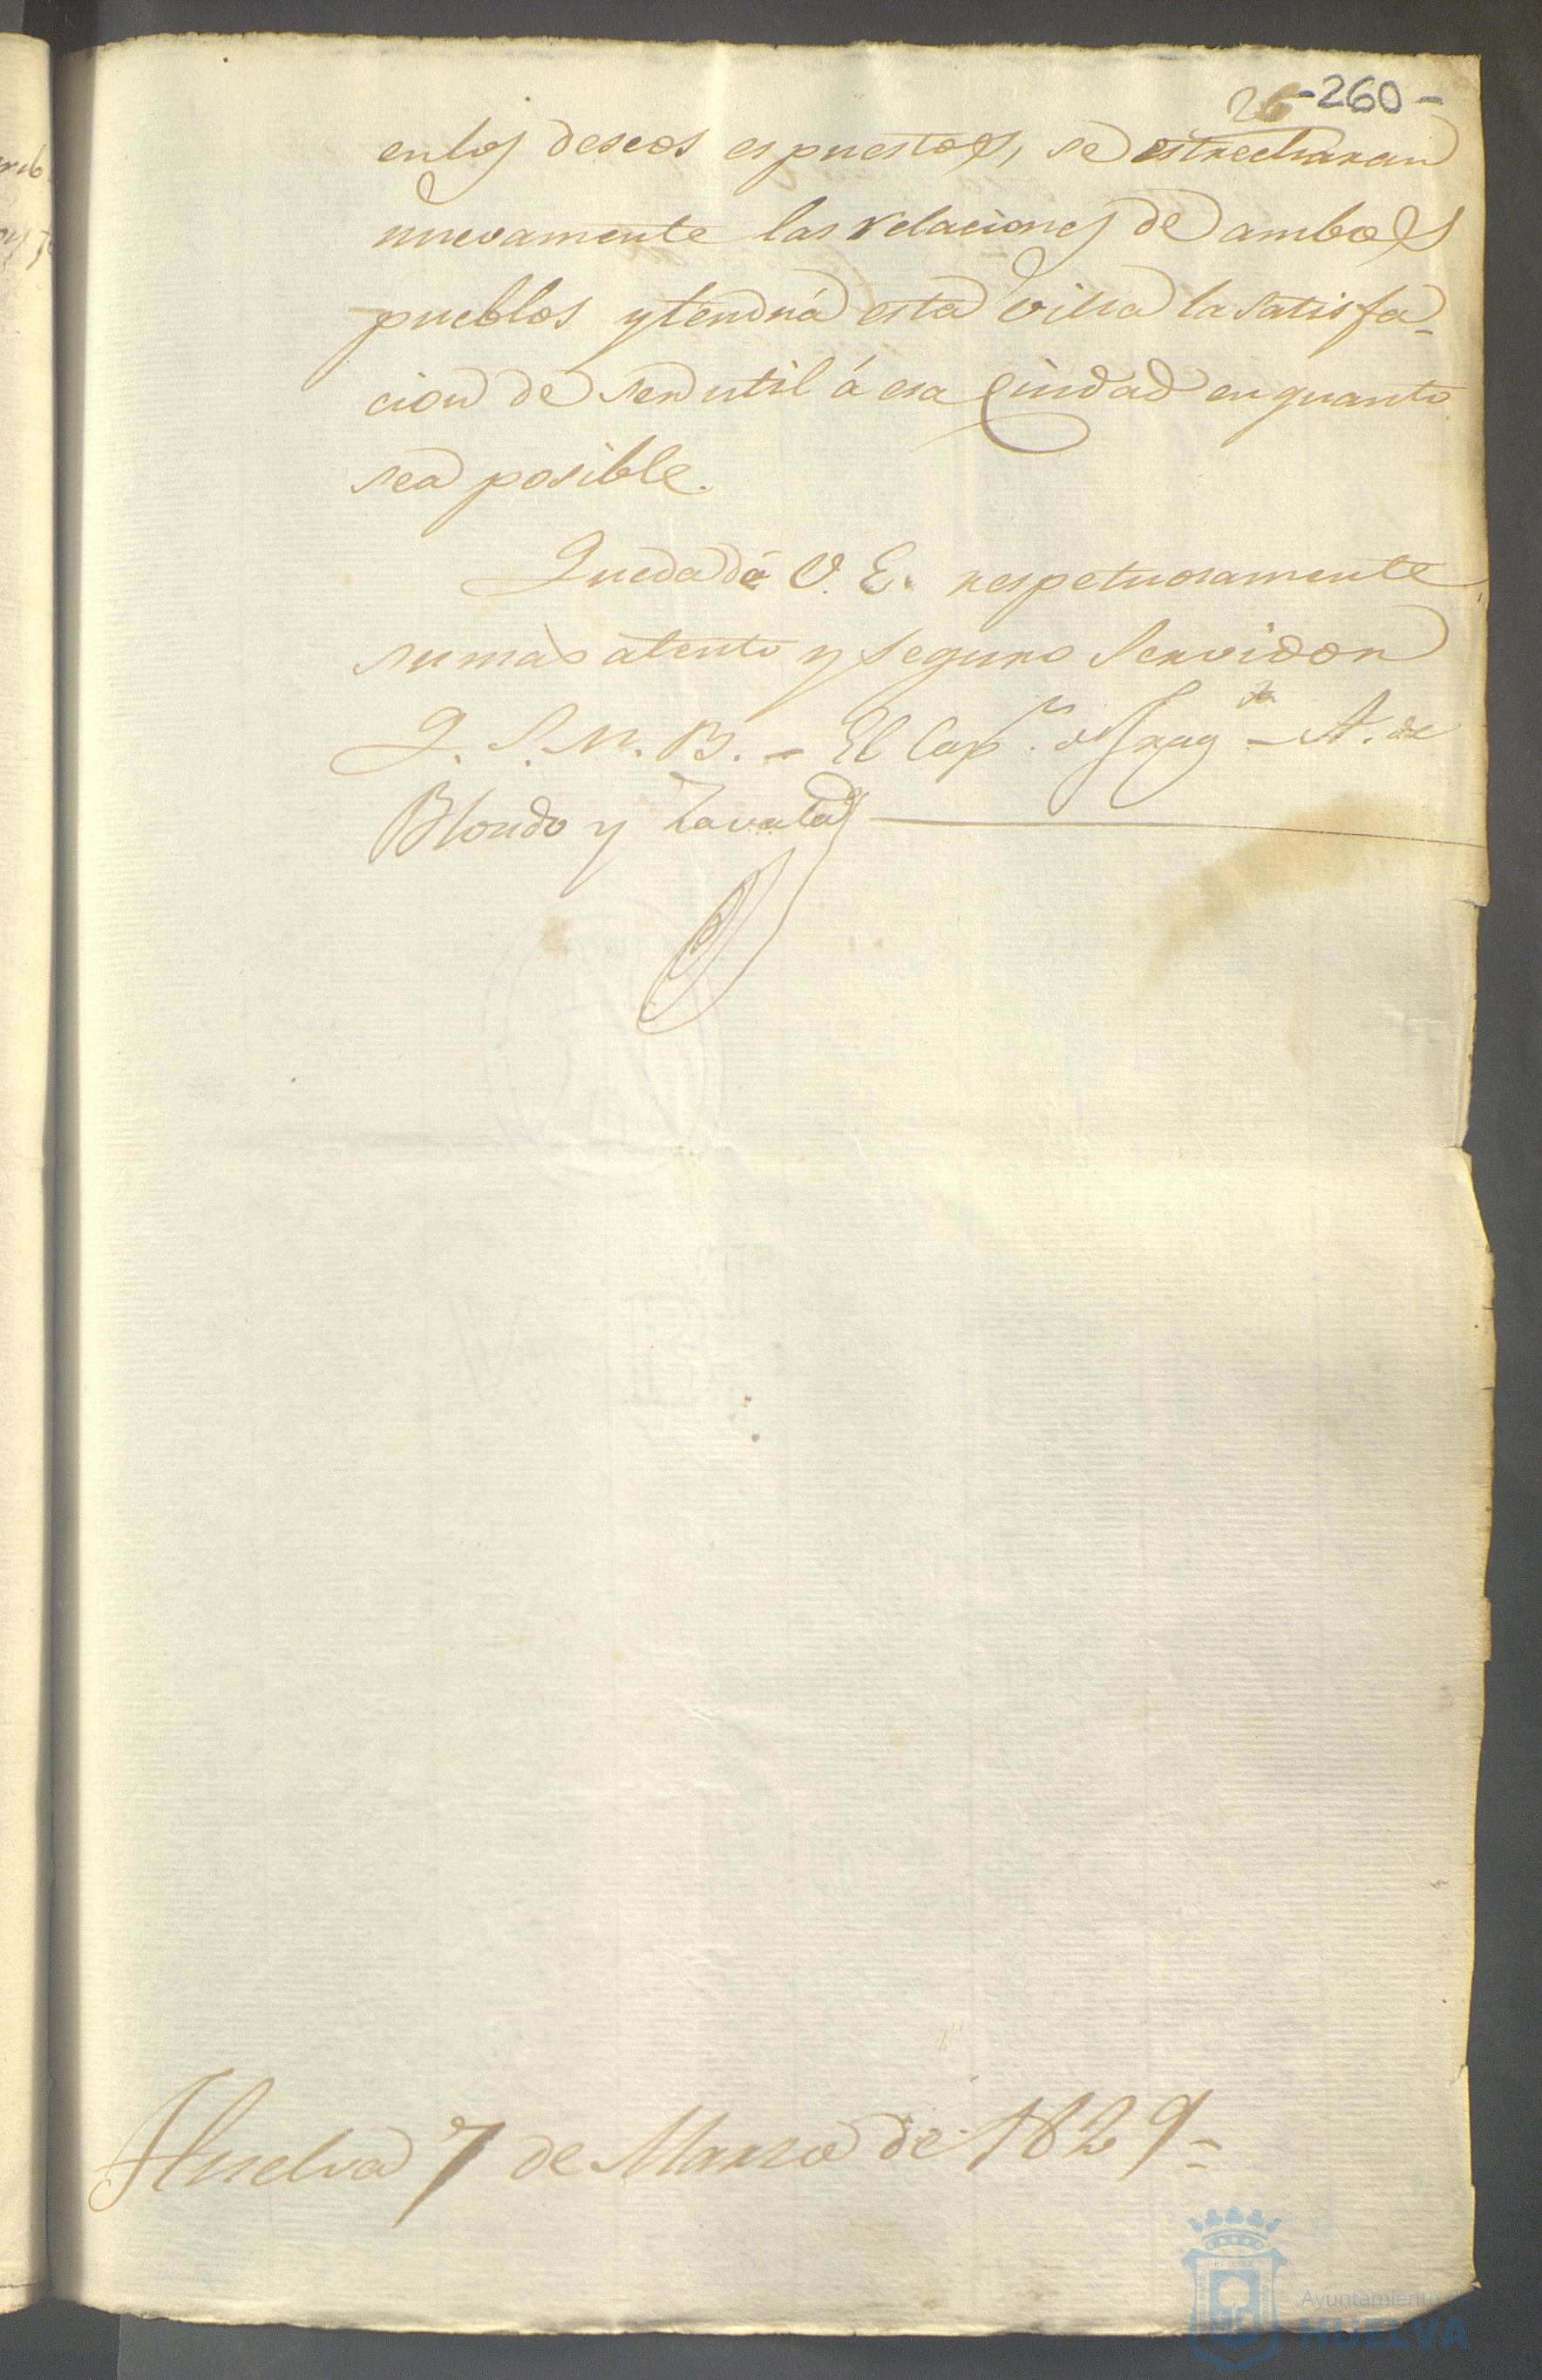 -260-
26
en los deseos espuestos, se estrecharan
nuevamente las relaciones de ambos
pueblos y tendrá esta villa la satisfa-
cion de ser util á esa Ciudad en quanto
sea posible.
Queda de V. E. respetuosamente
su más atento y seguro Servidor
Q. S. M. B. - El Cap.n de Frag.ta - A. de
Blondo y Zavala
Huelva 7 de Marzo de 1829-
Ayuntamiento de
HUELVA